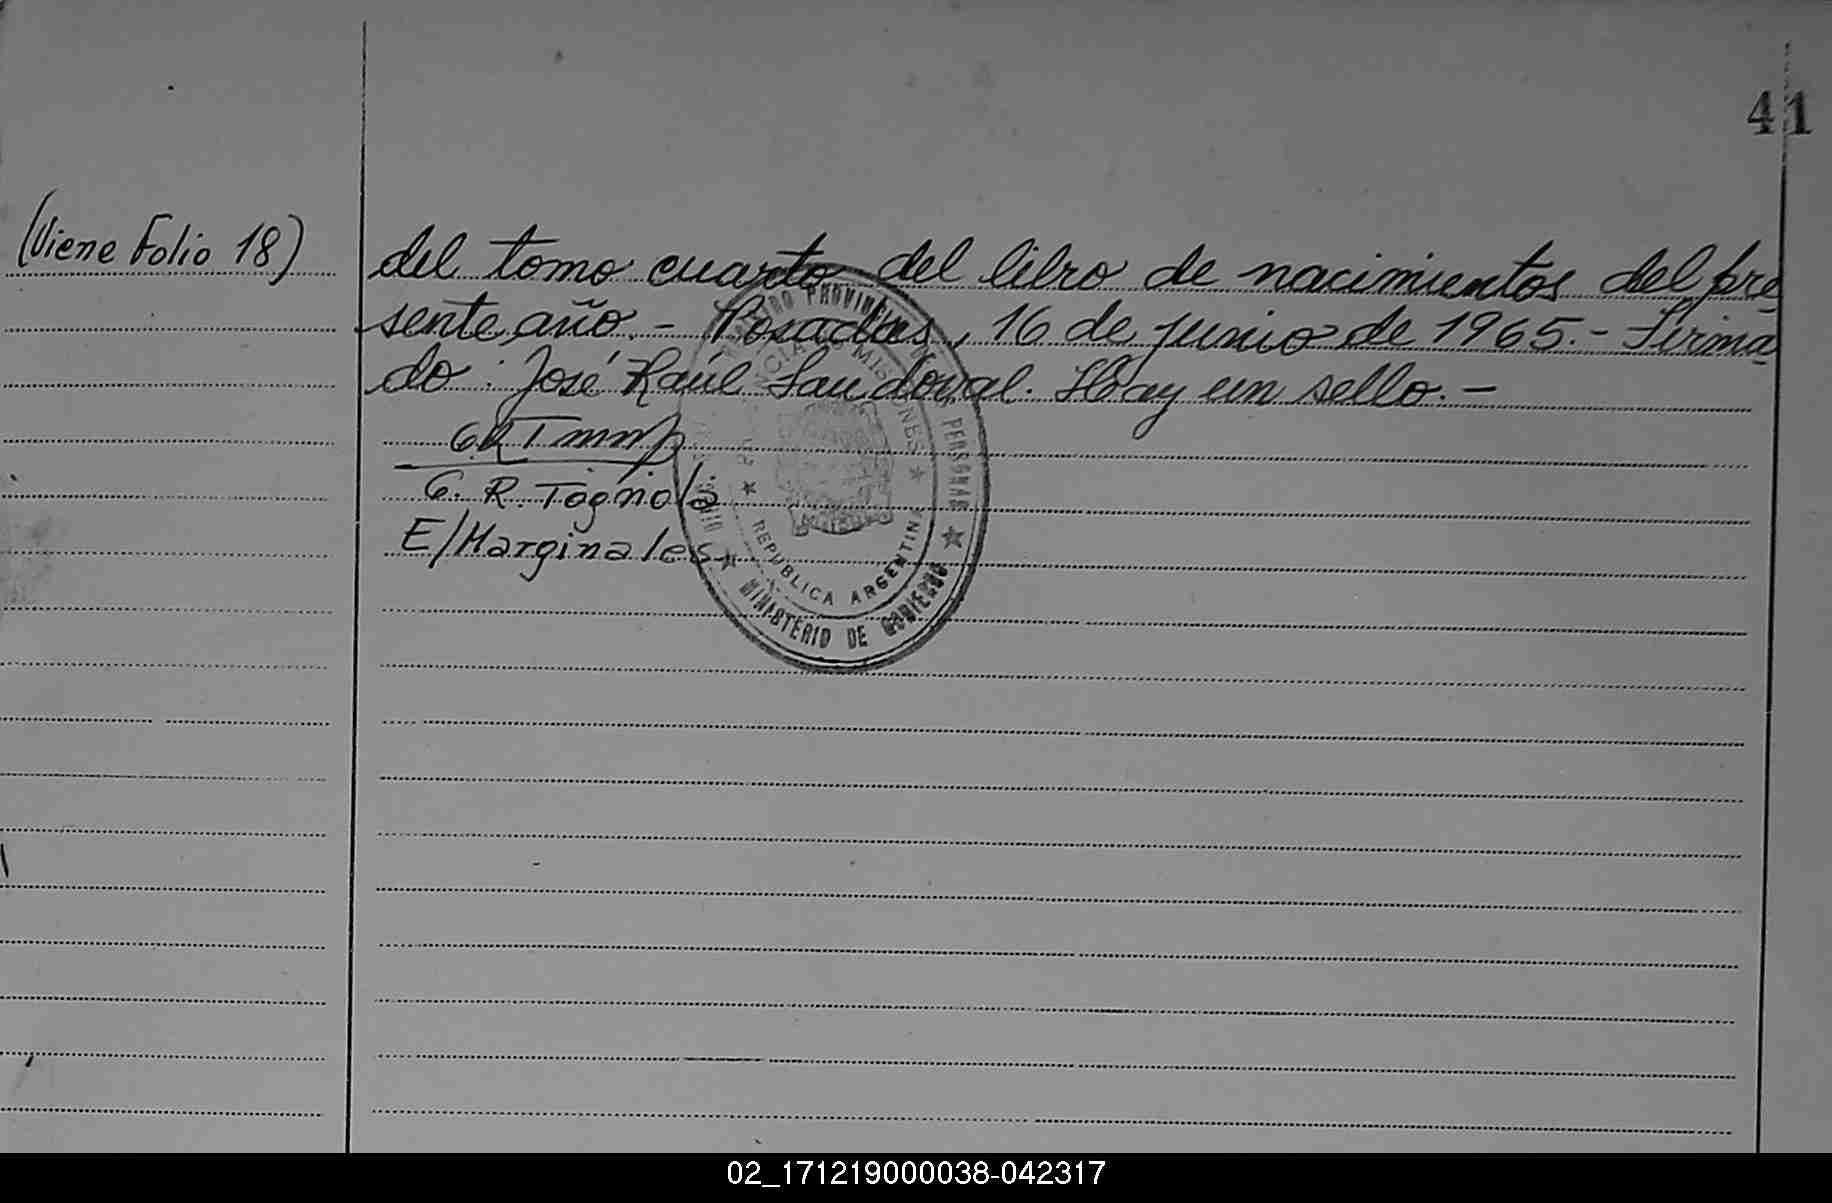 41
(Viene Folio 18)
del tomo cuarto del libro de nacimientos del pre
sente año.- Posadas, 16 de junio de 1965.- Firma
do: José Raúl Sandoval. Hay un sello.-
G. R. Tognola
E/Marginales
REGISTRO PROVINCIAL DE LAS PERSONAS
PROVINCIA DE MISIONES
REPUBLICA ARGENTINA
MINISTERIO DE GOBIERNO
02_171219000038-042317